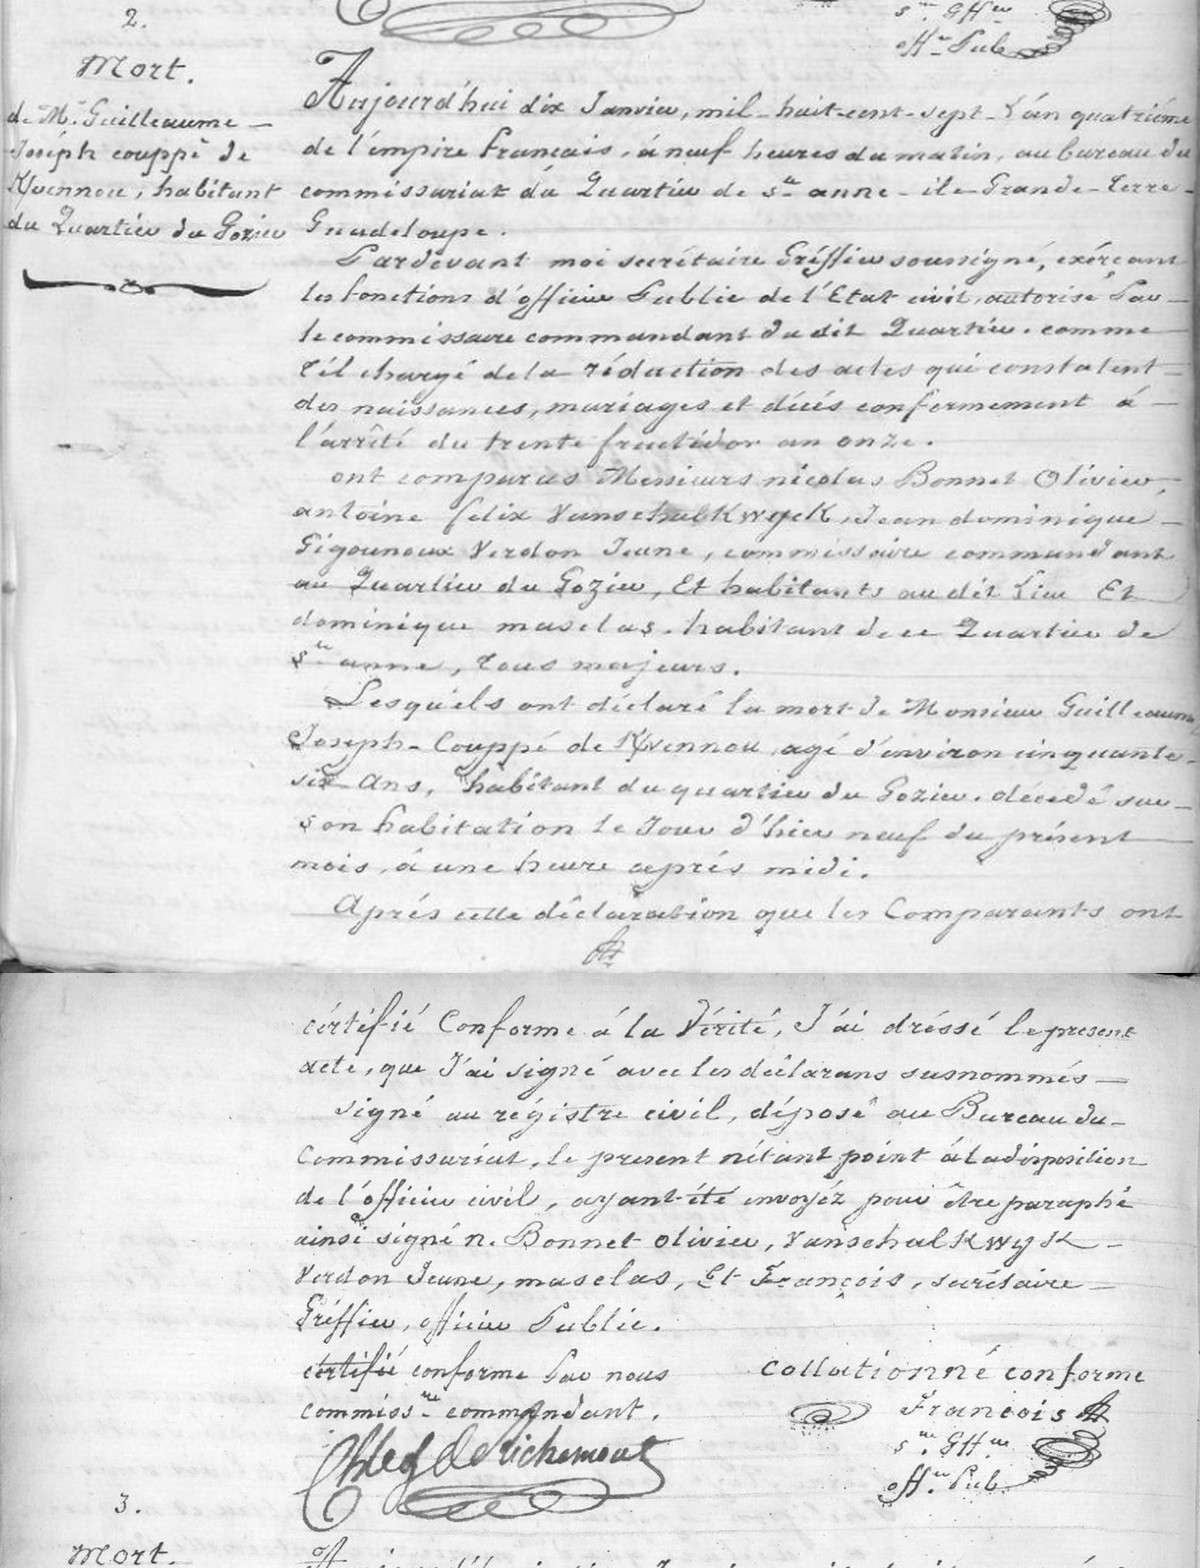 s.re Gff.er
off.er Pub
2.
Mort.
de M.r Guilleaume
Joséph couppé de
Kvennou, habitant
du Quartier du Gozier
Aujourd'hui dix Janvier, mil-huit-cent-sept-L'án quatriéme
de l'émpire francais, á neuf heures du matin, au bureau du
commissariat du Quartier de s.te anne - ile Grande-terre-
Guadeloupe.
Pardevant moi secrétaire Gréffier soussigné, éxérçant
les fonctions d'officier Public de l'Etat civil, autorisé Par
le commissaire commandant du dit Quartier. comme
tél chargé de la réduction des actes qui constatent
des naissances, mariages et décés confermement á
l'arrêté du trente fructidor an onze.
ont comparus Messieurs nicolas Bonnet Olivier,
antoine felix VanschalKwycK, Jean dominique
Gigounoux Verdon Jeune, commissaire commandant
au Quartier du Gozier, Et habitants au dit Lieu Et
dominique maselas. habitant de ce Quartier de
s.te anne, tous majeurs.
Lesquels ont déclaré la mort de Monsieur Guilleaume
Joseph-Couppé de Kvennou, agé d'environ cinquante-
six ans, habitant du quartier du Gozier. décédé sur
son habitation le Jour d'hier neuf du présent
mois, á une heure aprés midi.
Aprés cette déclaration que les Comparants ont
cértéfié Conforme á la Vérité, J'ai dréssé le present
acte, que J'ai signé avec les déclarans susnommés
signé au régistre civil, déposé au Bureau du
Commissariat, le present nétant point á La disposition
de l'officier civil, ayant été envoyéz pour être paraphé
ainsi signé n. Bonnet olivier, VanschalKwyK
Verdon Jeune, maselas, Et François, secrétaire
Gréffier, officier Public.
cértifié conforme Par nous
commiss.re commandant.
collationné conforme
François
s.re Gff.er
off.er Pub
de richemont
3.
Mort.